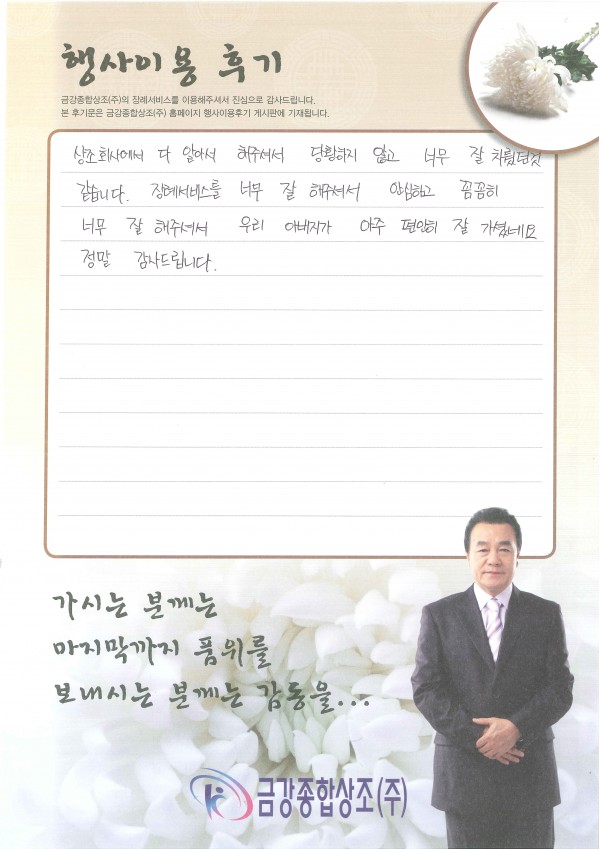 행사이용 후기
금강종합상조(주)의 장례서비스를 이용해주셔서 진심으로 감사드립니다.
본 후기문은 금강종합상조(주) 홈페이지 행사이용후기 게시판에 기재됩니다.
상조회사에서 다 알아서 해주셔서 당황하지 않고 너무 잘 치뤘던것
같습니다. 장례서비스를 너무 잘 해주셔서 안심하고 꼼꼼히
너무 잘 해주셔서 우리 아버지가 아주 편안히 잘 가셨네요
정말 감사드립니다.
가시는 분께는
마지막까지 품위를
보내시는 분께는 감동을...
금강종합상조(주)